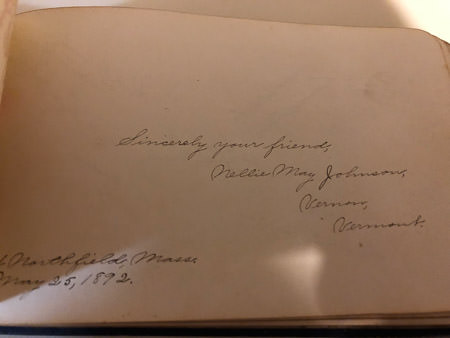 Sincerely your friend,
Nellie May Johnson,
Vernon,
Vermont.
Northfield, Mass.
May 25, 1892.